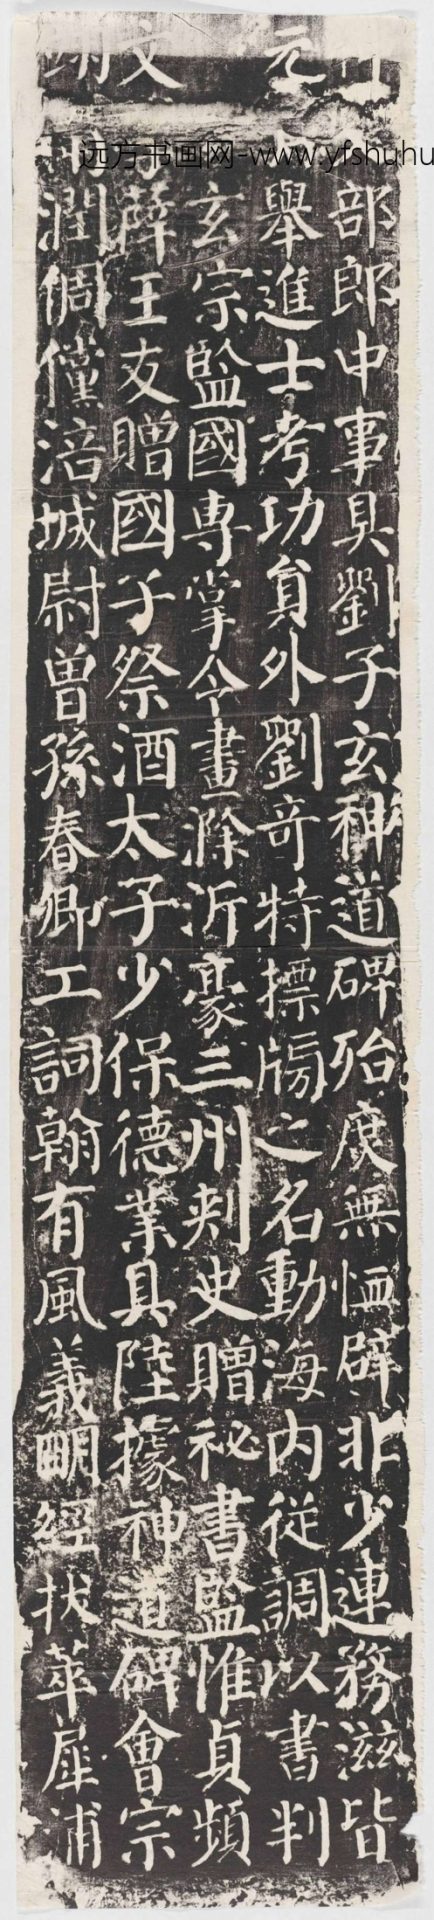 远方书画网-www.yfshuhu
部郎中事具劉子玄神道碑殆庶無恤辟非少連務滋皆
元舉進士考功員外劉奇特摽牓之名動海內從調以書判
玄宗監國專掌令畫滁沂豪三州刾史贈祕書監惟貞頻
文薛王友贈國子祭酒太子少保德業具陸據神道碑會宗
潤倜儻涪城尉曾孫春卿工詞翰有風義眀經拔萃犀浦